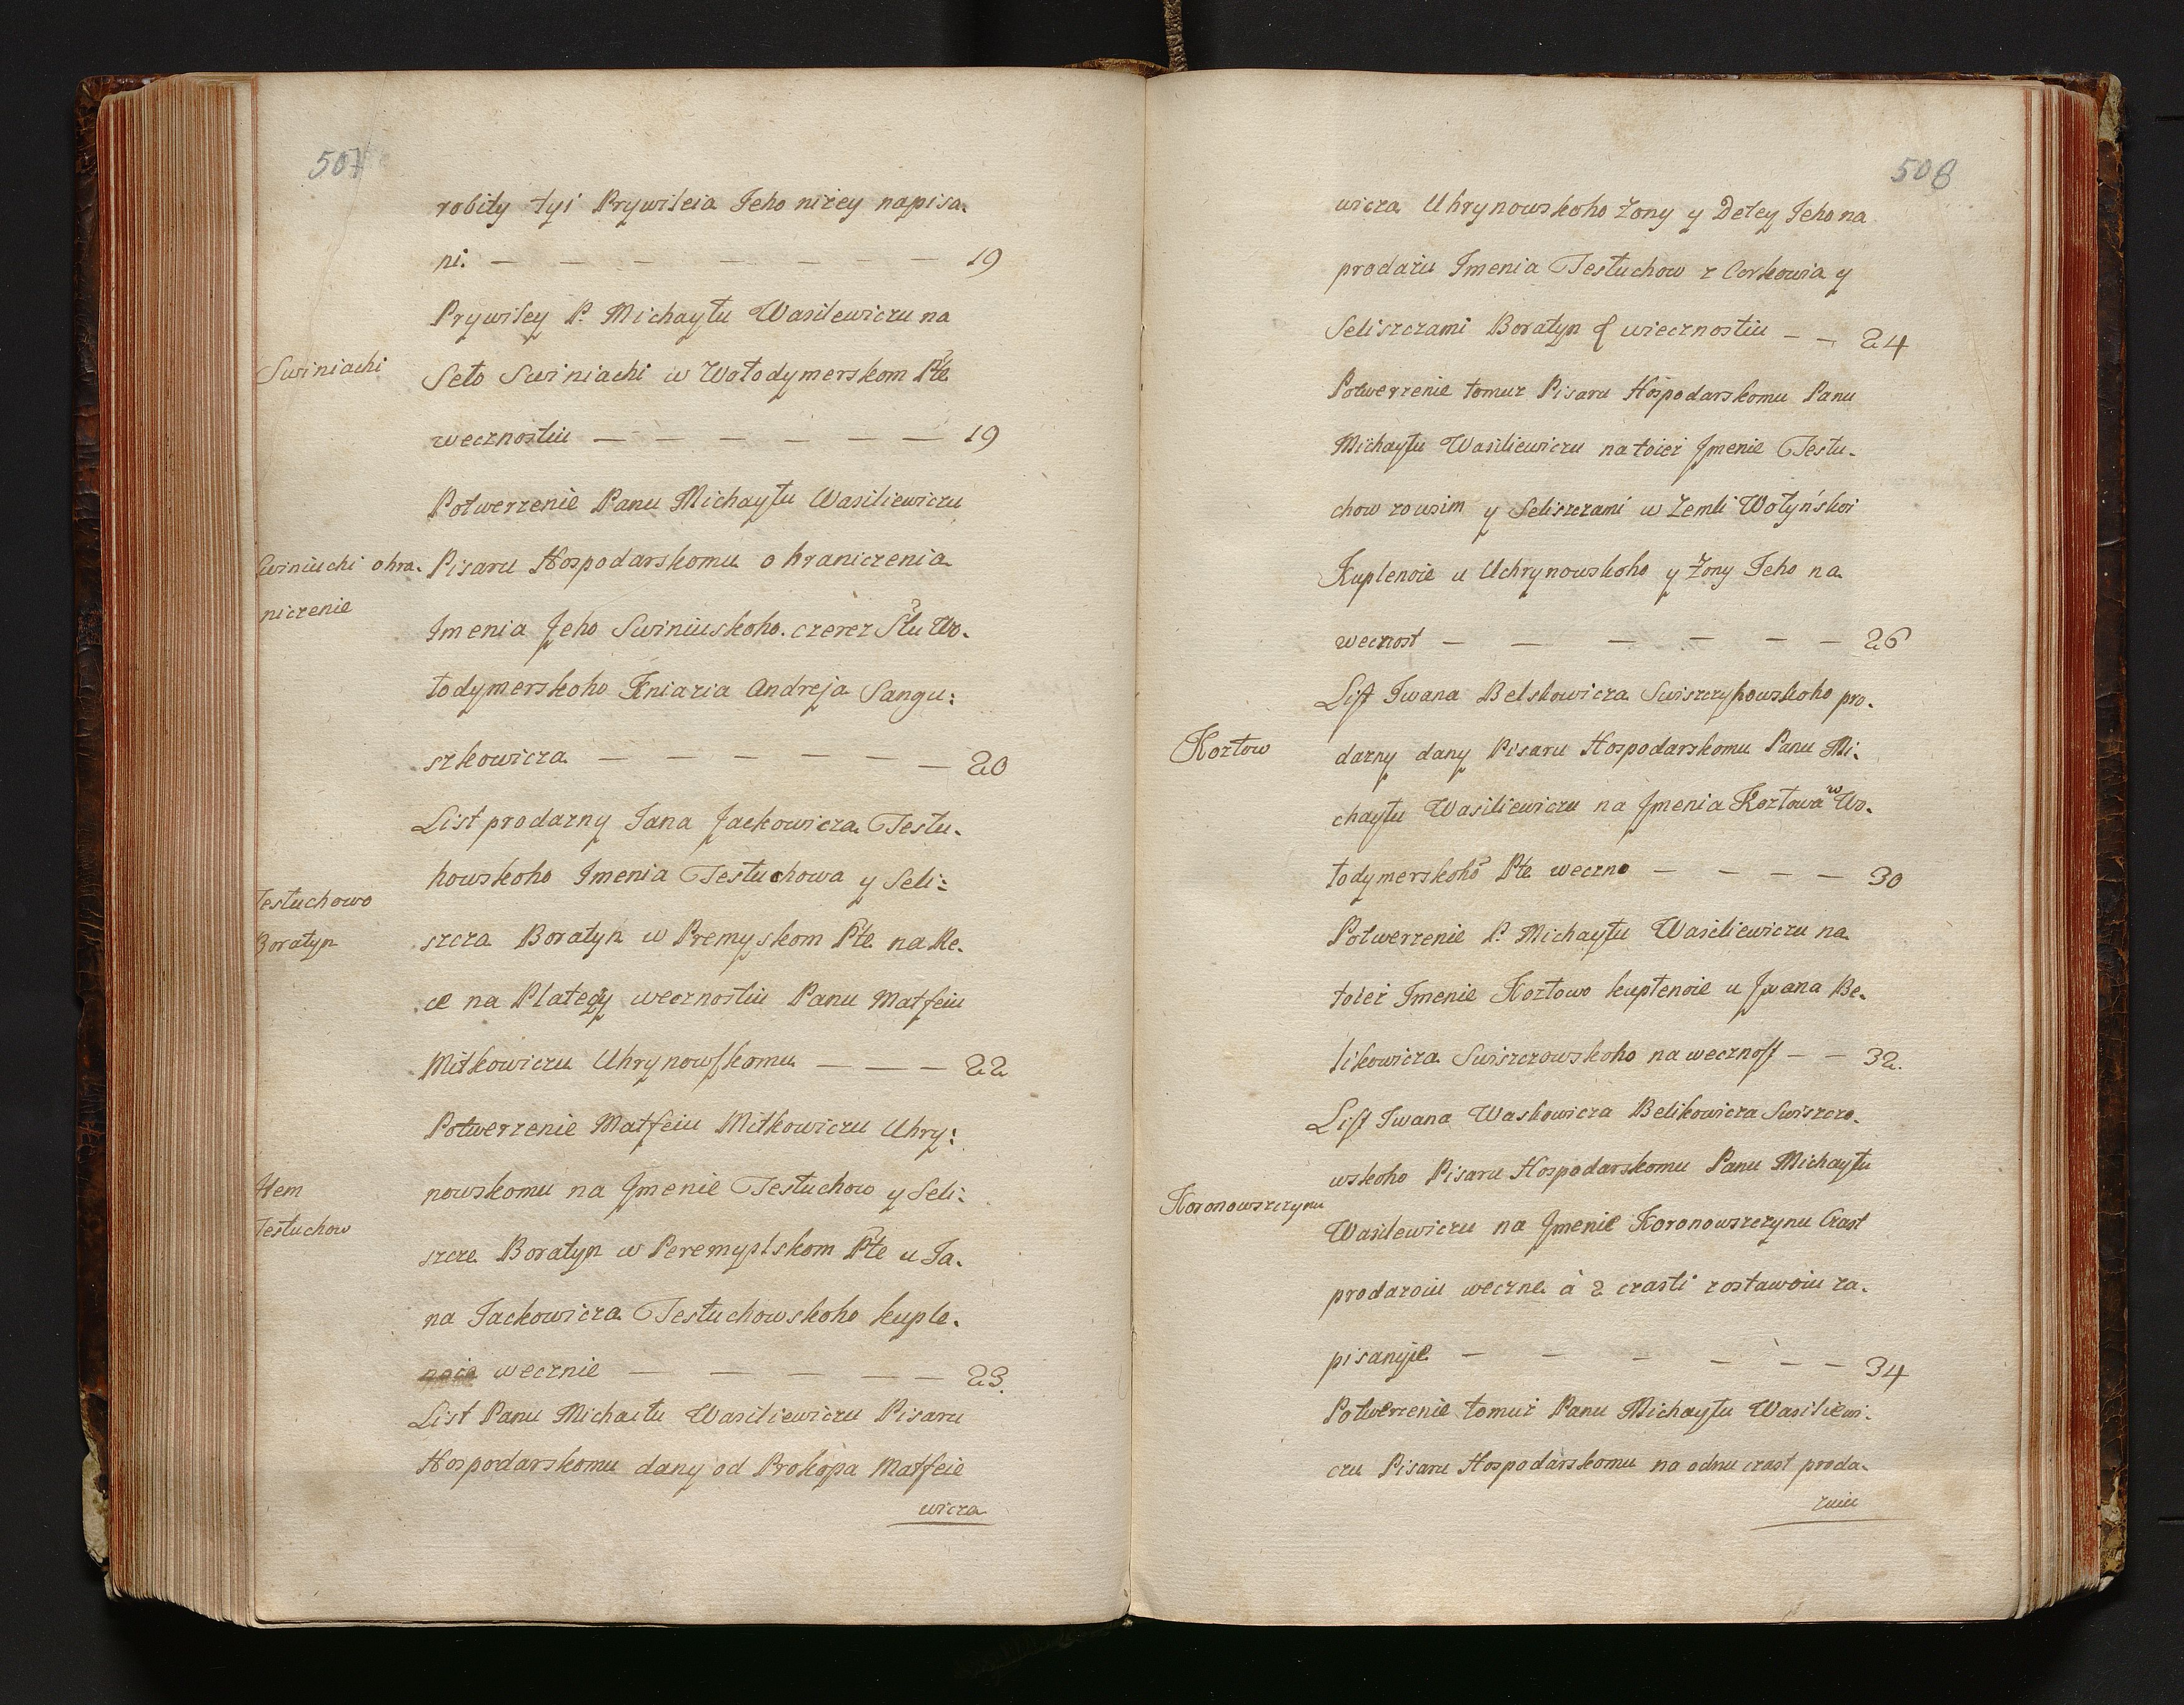 507
robiły tyi Prywileia Jeho niżey napisa-
ni. — — — — — — — 19
Prywiley P. Michayłu Wasilewiczu na
Swiniachi
Seło Swiniachi w Wołodymerskom Pte
wecznostiu — — — — — — 19
Potwerzenie Panu Michayłu Wasiliewiczu
Swiniuchi ohra-
niczenie
Pisaru Hospodarskomu o hraniczenia
Imenia Jeho Swiniuskoho czerez Stu Wo-
łodymerskoho Kniazia Andreja Sangu:
szkowicza — — — — — — 20
List prodazny Jana Jackowicza Testu-
howskoho Imenia Testuchowa y Seli:
Testuchowo
Boratyn
szcza Boratyn w Premyskom Pte na Re-
ce na Platecy wecznostiu Panu Matfeiu
Mitkowiczu Uhrynowskomu — — — 22
Potwerzenie Matfeiu Mitkowiczu Uhry:
Item
Testuchow
nowskomu na Jmenie Testuchow y Seli:
szcze Boratyn w Peremyplskom Pte u Ja-
na Jackowicza Testuchowskoho kuple-
noie wecznie — — — — — 23.
List Panu Michaiłu Wasiliewiczu Pisaru
Hospodarskomu dany od Prokopa Matfeie
wicza
508
wicza Uhrynowskoho Żony y Detey Jeho na
prodażu Imenia Testuchow z Corkowia y
Seliszczami Boratyn wiecznostiu — — 24
Potwerzenie tomuz Pisaru Hospodarskomu Panu
Michayłu Wasiliewiczu na toież Jmenie Testu-
chow zowsim y Seliszczami w Zemli Wołyńskoi
Kuplenoie u Uchrynowskoho y Żony Jeho na
wecznost — — — — — — 26
List Iwana Belskowicza Swiszczyhowskoho pro-
Kozłow
dazny dany Pisaru Hospodarskomu Panu Mi-
chayłu Wasiliewiczu na Jmenia Kozłowa w Wo-
łodymerskoho Pte weczno — — — — 30
Potwerzenie P. Michayłu Wasiliewiczu na
toież Imenie Kozłowo kuptenoie u Jwana Be-
likowicza Swiszczowskoho na wecznost — — 32.
List Iwana Waskowicza Belikowicza Swiszczo-
wskoho Pisaru Hospodarskomu Panu Michayłu
Koronowszczynu
Wasilewiczu na Jmenie Koronowszczynu Czast
prodazoiu weczne à 2 czasti zostawoiu za-
pisanyie — — — — — — 34
Potwerzenie tomuż Panu Michayłu Wasiliewi-
czu Pisaru Hospodarskomu na odnu czast proda-
zuiu